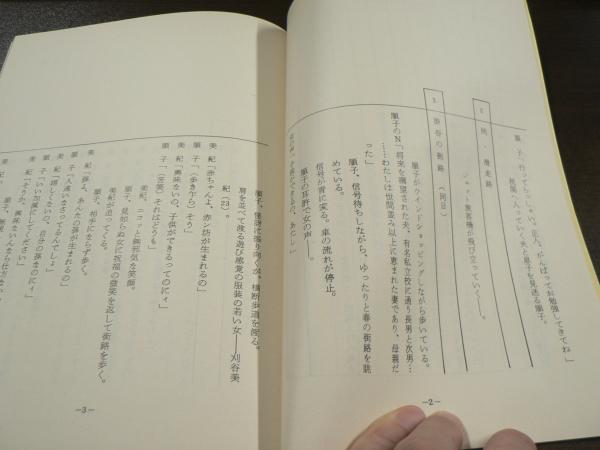 順　子「行ってらっしゃい。正人、がんばってお勉強してきてね」
税関へ入っていく夫と息子を見送る順子。
2　同・滑走路
ジャット旅客機が飛び立っていく――。
3　渋谷の街路（同日）
順子がウインドショッピングしながら歩いている。
順子のN「将来を嘱望された夫、有名私立校に通う長男と次男…
……わたしは世間並み以上に恵まれた妻であり、母親だ
った」
順子、信号待ちしながら、ゆったりと春の街路を眺
めている。
信号が青に変る。車の流れが停止。
順子の耳許で女の声――。
女の声「子供ができるの、あたし」
—2—
順子、怪訝に振り向くが、横断歩道を渡る。
肩を並べて渡る遊び感覚の服装の若い女――刈谷美
紀（23）。
美　紀「赤ちゃんよ、赤ン坊が生まれるの」
順　子「（歩き乍ら）そう」
美　紀「興味ないの、子供ができるってのにィ」
順　子「（苦笑）それはどうも」
美紀、ニコッと無邪気な笑顔。
順子、見知らぬ女に祝福の微笑を返して街路を歩く。
美紀が追ってくる。
順子、相手にならず歩く。
美　紀「孫よ、あんたの孫が生まれるの」
順　子「人違いなさってるんでしょ」
美　紀「嬉しくないの、自分の孫なのにィ」
順　子「いい加減にしてください」
美　紀「そうか、興味ないんなら仕方ない
—3—